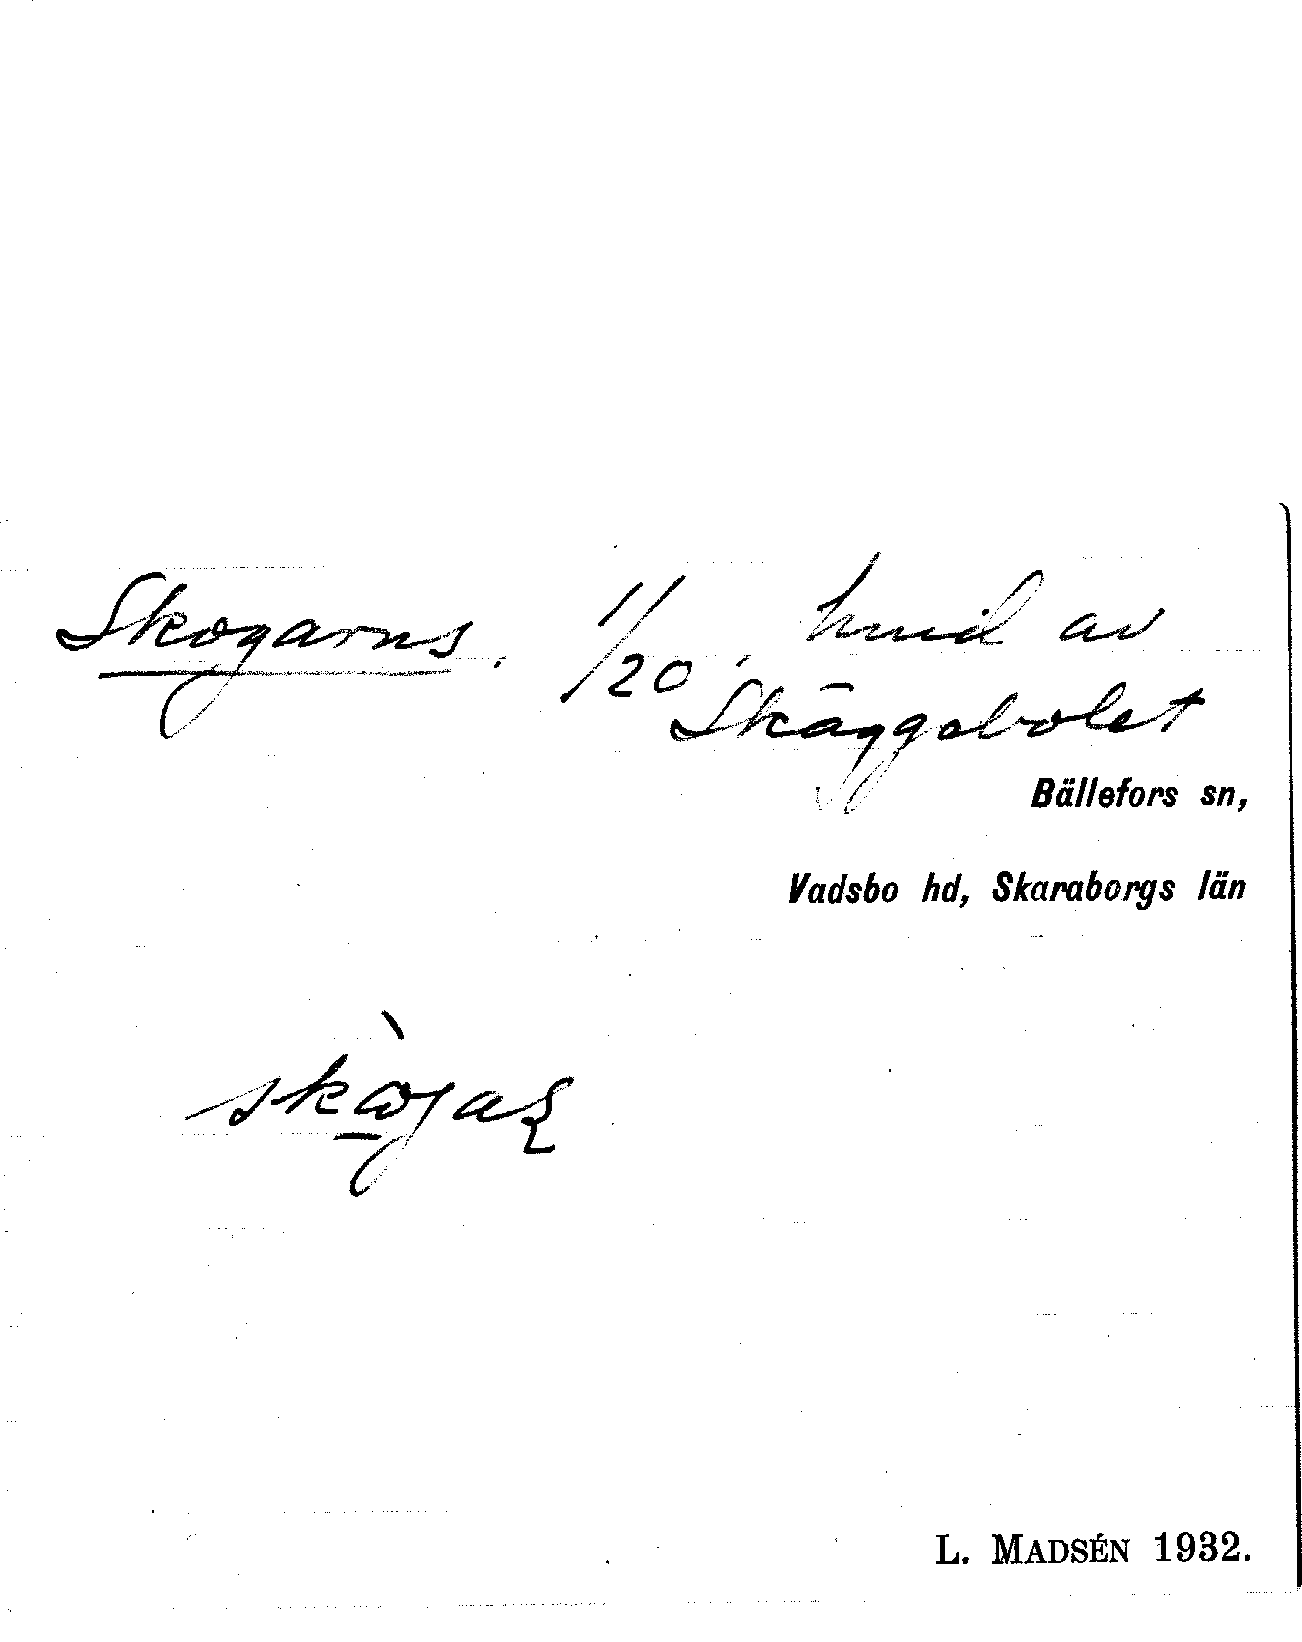 Skogarns. 1/20, hmd av
Skäggebolet
Bällefors sn,
Vadsbo hd, Skaraborgs län
L. MADSÉN 1932.